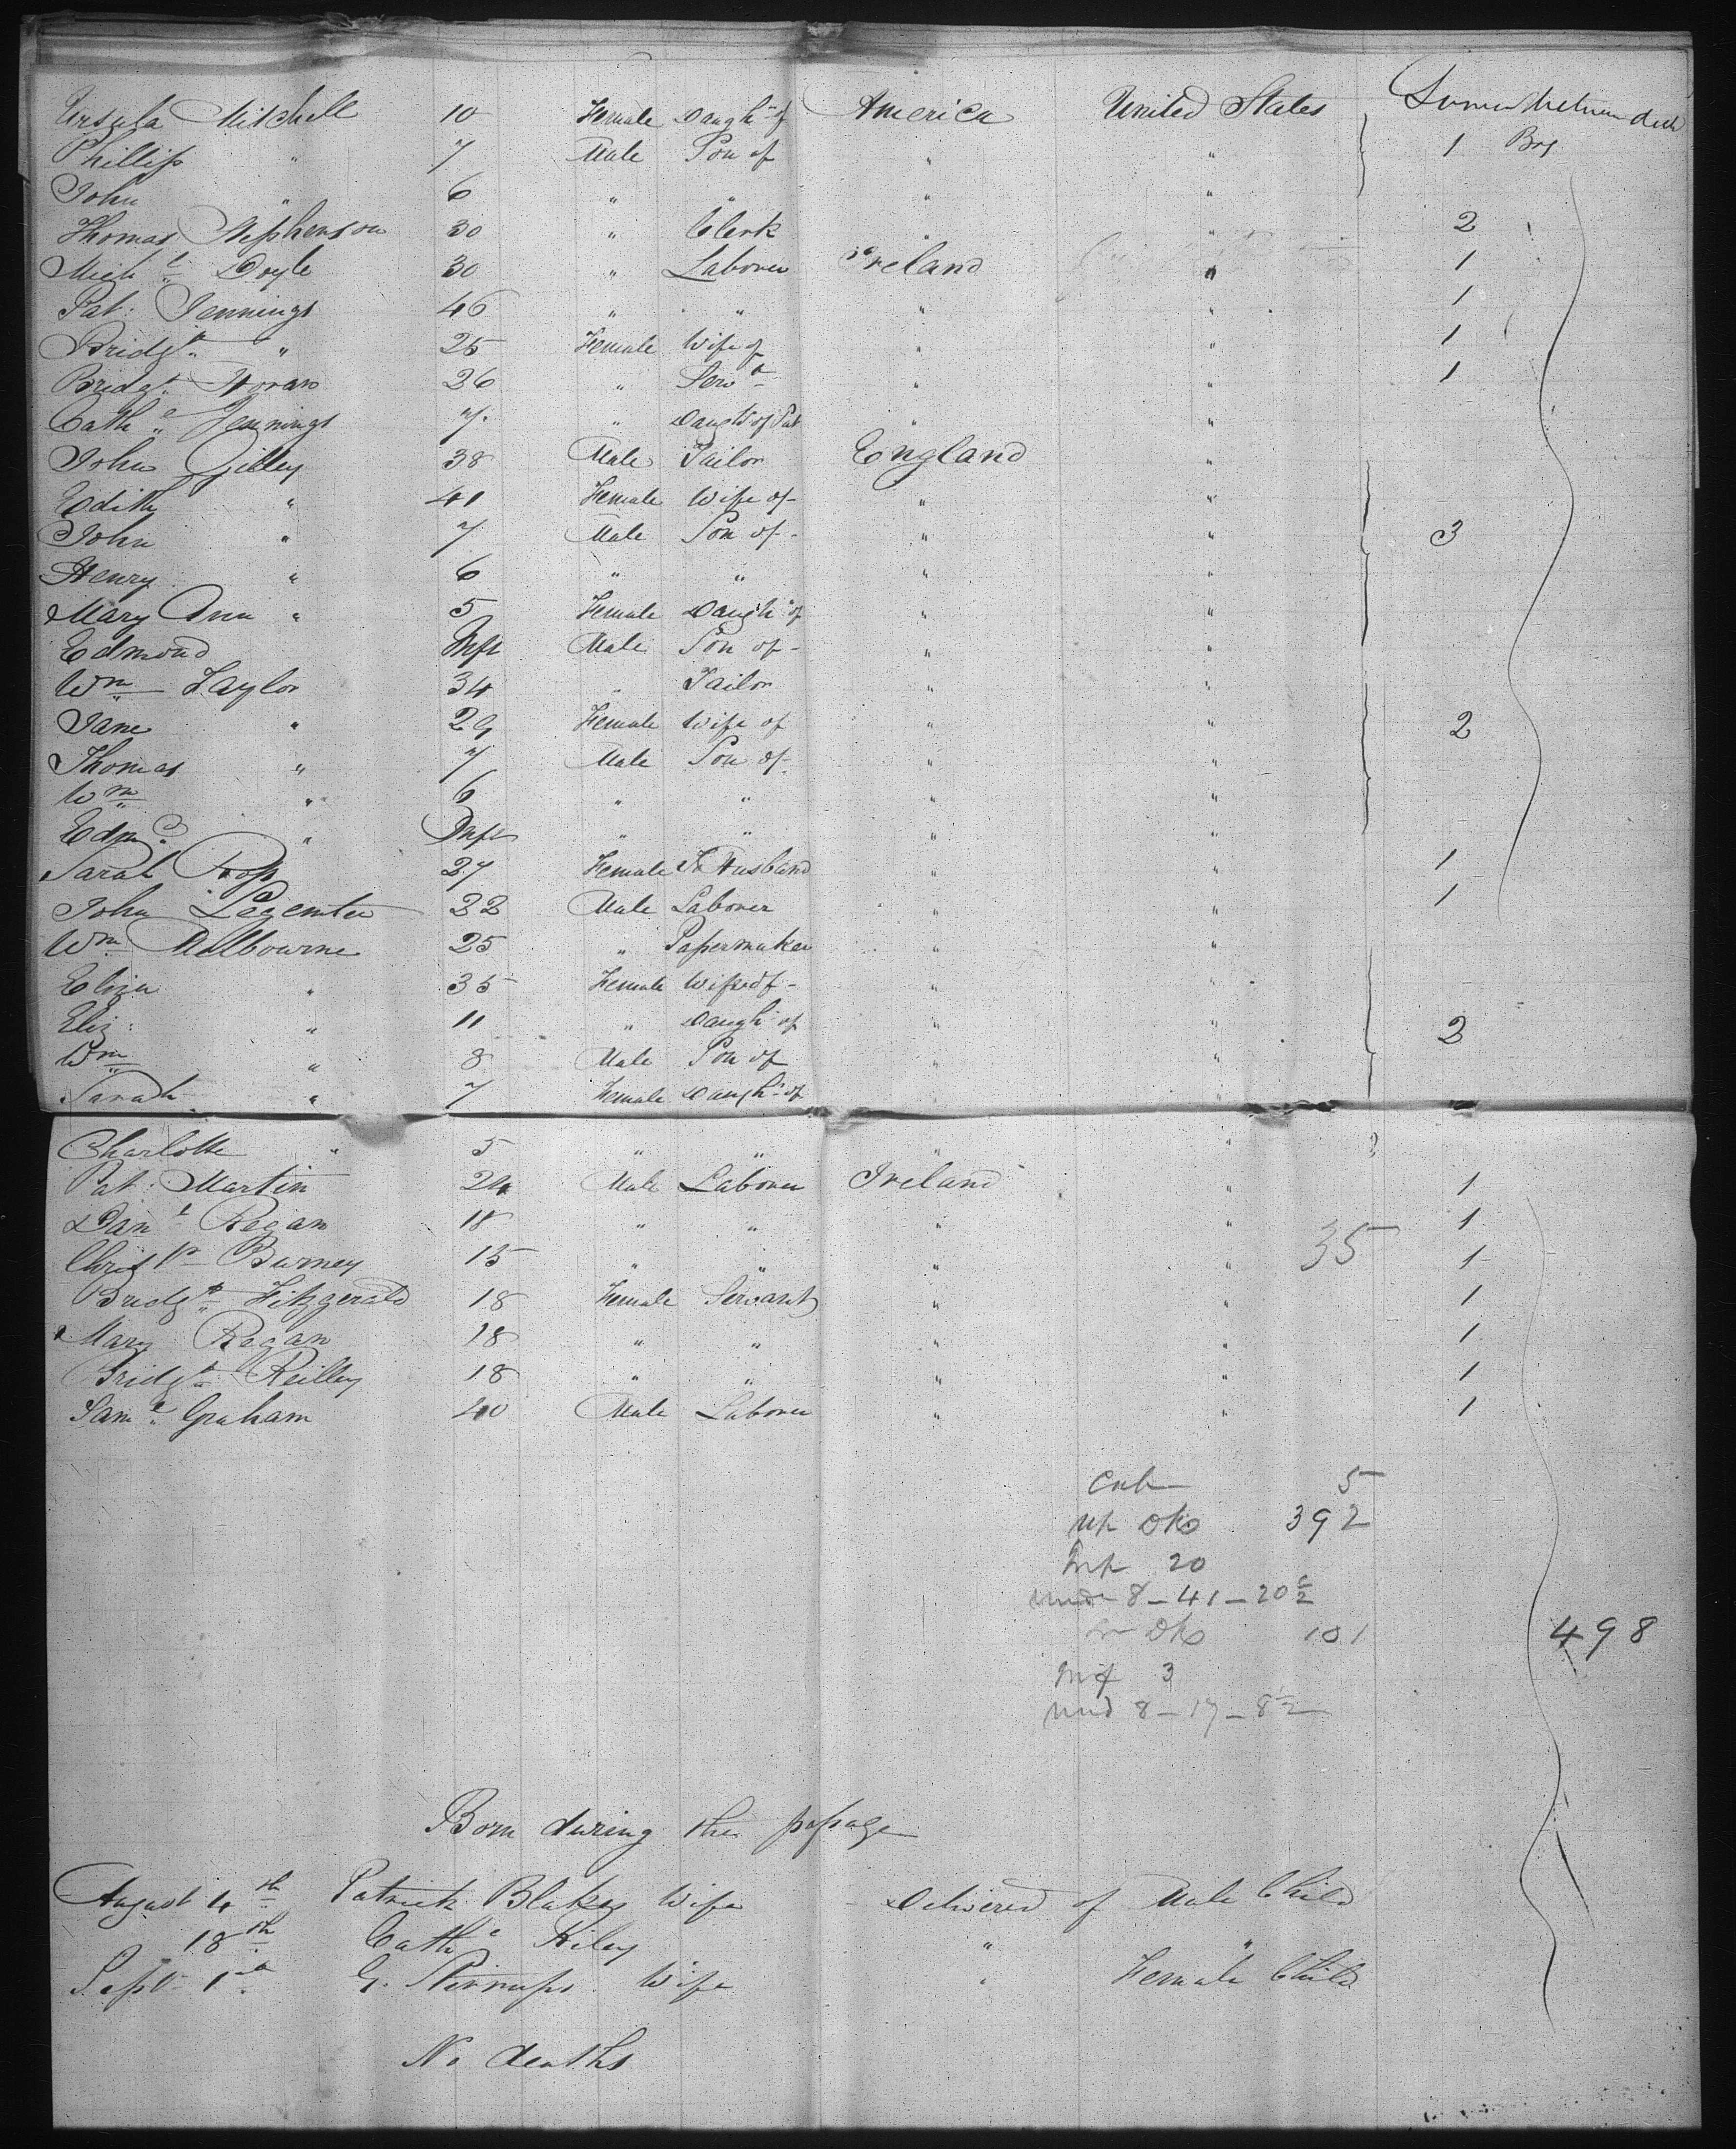 Ursula Mitchell 10 Female Daugh of America United States
Phillip " 7 Male Son of " " 1 Box
John " 6 " " " "
Thomas Stephenson 30 " Clerk " " 2
Mich.l Doyle 30 " Laborer Ireland " 1
Pat: Jennings 46 " " " " 1
Bridg.t " 25 Female Wife of " " 1
Bridg.t Horan 26 " Serv.t " " 1
Cath.e Jennings 7 " Daugh of Pat " "
John Gilley 38 Male Tailor England "
Edith " 41 Female Wife of - " "
John " 7 Male Son of - " " 3
Henry " 6 " " " "
Mary Ann " 5 Female Daugh of " "
Edmond Inft Male Son of - " "
Wm Taylor 34 " Tailor " "
Jane " 29 Female Wife of " " 2
Thomas " 7 Male Son of - " "
Wm " 6 " " " "
Edm.d " Inft " " " "
Sarah Ross 27 Female To Husband " " 1
John 22 Male Laborer " " 1
Wm Millbourne 25 " Papermaker " "
Eliza " 35 Female Wife of - " "
Eliz: " 11 " Daugh of " " 2
Wm " 8 Male Son of " "
Sarah " 7 Female Daugh of " "
Charlotte " 5 " " " "
Pat: Martin 24 Male Laborer Ireland " 1
Dan.l Regan 18 " " " " 1
Christ.r Burney 15 " " " " 35 1
Bridg.t Fitzgerald 18 Female Servant " " 1
Mary Regan 18 " " " " 1
Bridg.t Reilley 18 " " " " 1
Sam.l Graham 40 Male Laborer " " 1
Cab 5
up Dk 392
Inf 20
und 8 - 41 - 20½
Dk 101
498
Inf 3
und 8 - 17 - 8½
Born during the passage
August 4th Patrick Blakes Wife Delivered of Male Child
18th Cath.e Kiley " "
Sept 1st G. Stirrups Wife " Female Child
No deaths